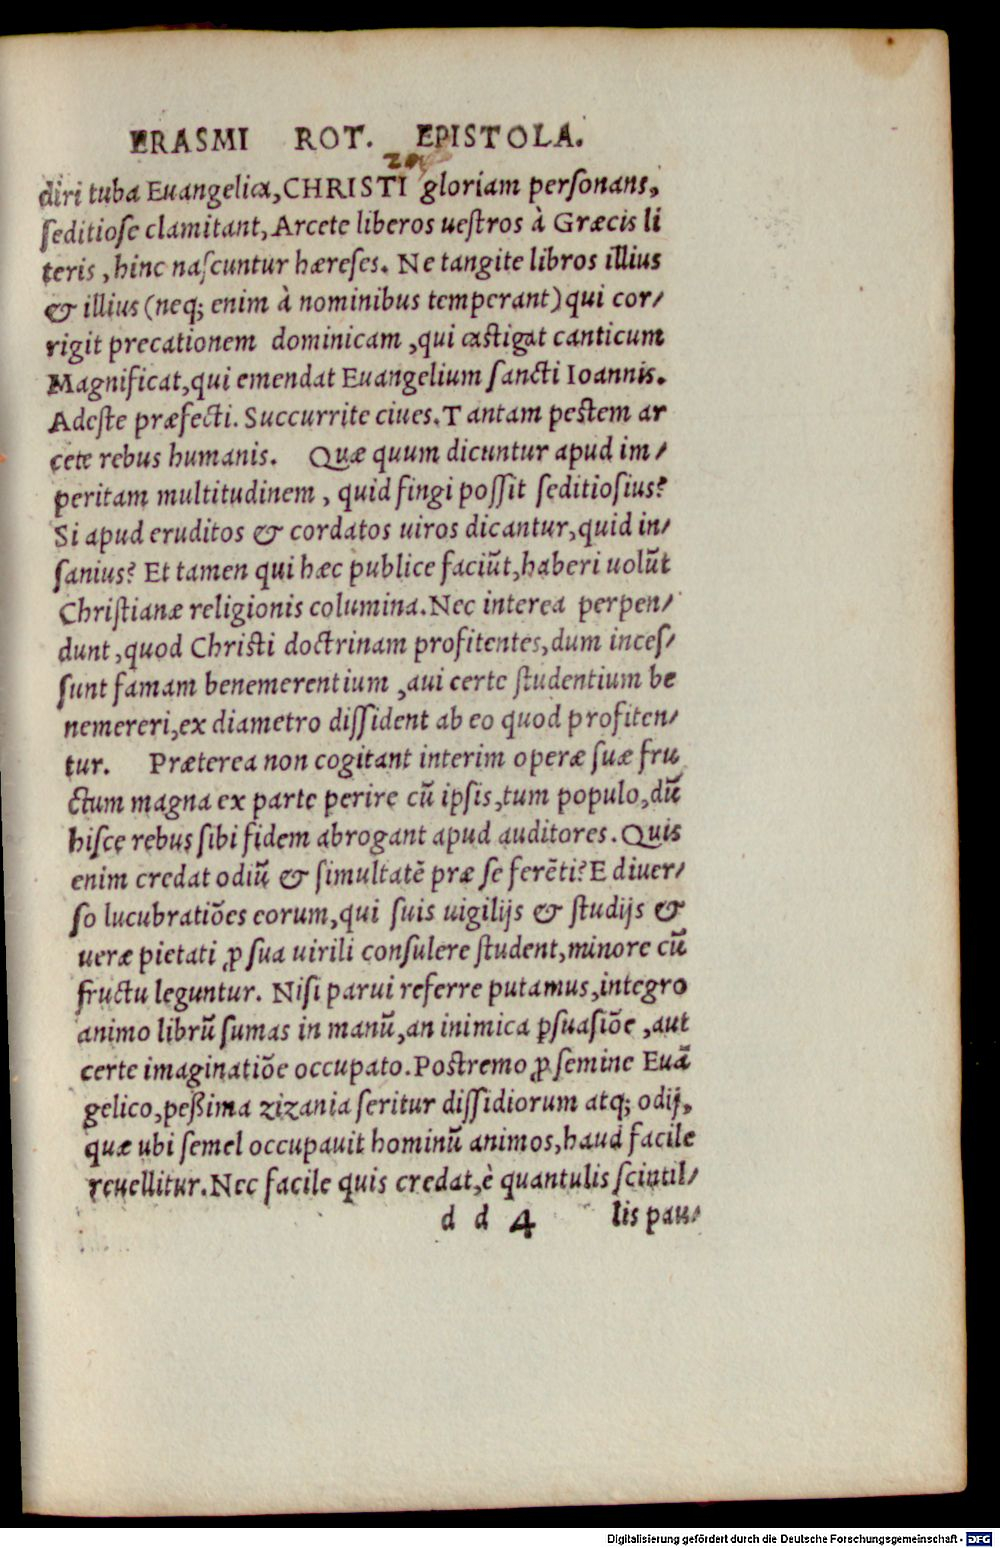 ERASMI ROT. EPISTOLA.
diri tuba Euangelica, CHRISTI gloriam personans,
seditiose clamitant, Arcete liberos uestros à Græcis li
teris, hinc nascuntur hæreses. Ne tangite libros illius
& illius (neq; enim à nominibus temperant) qui cor/
rigit precationem dominicam, qui castigat canticum
Magnificat, qui emendat Euangelium sancti Ioannis.
Adeste præfecti. Succurrite ciues. Tantam pestem ar
cete rebus humanis. Quæ quum dicuntur apud im/
peritam multitudinem, quid fingi possit seditiosius?
Si apud eruditos & cordatos uiros dicantur, quid in/
sanius? Et tamen qui hæc publice faciũt, haberi uolũt
Christianæ religionis columina. Nec interea perpen/
dunt, quod Christi doctrinam profitentes, dum inces/
sunt famam benemerentium, aui certe studentium be
nemereri, ex diametro dissident ab eo quod profiten/
tur. Præterea non cogitant interim operæ suæ fru
ctum magna ex parte perire cũ ipsis, tum populo, dũ
hisce rebus sibi fidem abrogant apud auditores. Quis
enim credat odiũ & simultatẽ præ se ferẽti? E diuer/
so lucubratiões eorum, qui suis uigilijs & studijs &
ueræ pietati ꝓ sua uirili consulere student, minore cũ
fructu leguntur. Nisi parui referre putamus, integro
animo librũ sumas in manũ, an inimica ꝑsuasiõe, aut
certe imaginatiõe occupato. Postremo ꝓ semine Euã
gelico, peßima zizania seritur dissidiorum atq; odij,
quæ ubi semel occupauit hominũ animos, haud facile
reuellitur. Nec facile quis credat, è quantulis scintil/
d d 4 lis pau/
Digitalisierung gefördert durch die Deutsche Forschungsgemeinschaft - DFG